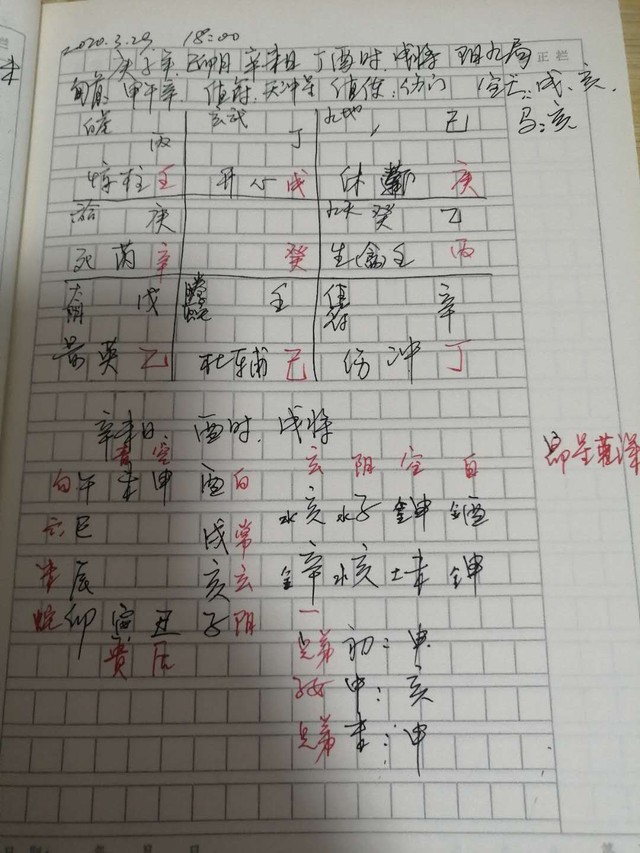 2020.3.29 18:00
庚子年 己卯月 辛未日 丁酉时 戌将 阳九局 正栏
旬首:甲午辛. 值符:天冲星 值使:伤门 空亡:戌.亥.
丙 玄武 丁 九地 己 马:亥
惊柱壬 开心戊 休 庚
庚 九天 癸 乙
死芮辛 癸 生(禽)壬 丙
太阴 戊 螣蛇 壬 值符 辛
景英乙 杜车甫己 伤冲丁
辛未日 酉时. 戌将
青空 玄阴空白
白午未申酉白 水亥 水子 金申 金酉
六巳 戌常
辰 亥玄 金辛 水亥 土未 金申
蛇卯寅丑子阴
贵后
兄弟 初:申
中:亥
兄弟 末:申